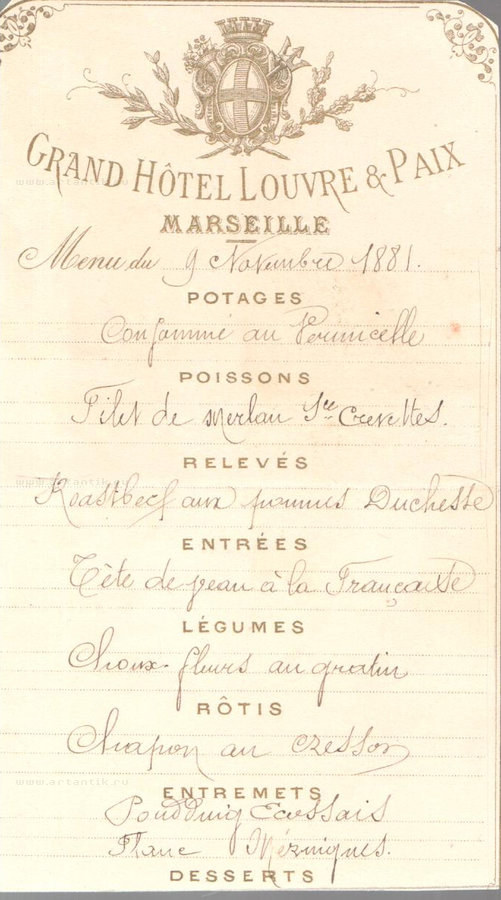 GRAND HÔTEL LOUVRE & PAIX
MARSEILLE
Menu du 9 Novembre 1881.
POTAGES
Consommé au Vermicelle
POISSONS
Filet de Merlan Sce Crevettes.
RELEVÉS
Roastbeef aux pommes Duchesse
ENTRÉES
Tête de veau à la Française
LÉGUMES
Choux-fleurs au gratin
RÔTIS
Chapon au Cresson
ENTREMETS
Poudduig Ecossais
Flanc
DESSERTS
www.artantik.ru
www.artantik.ru
www.artantik.ru